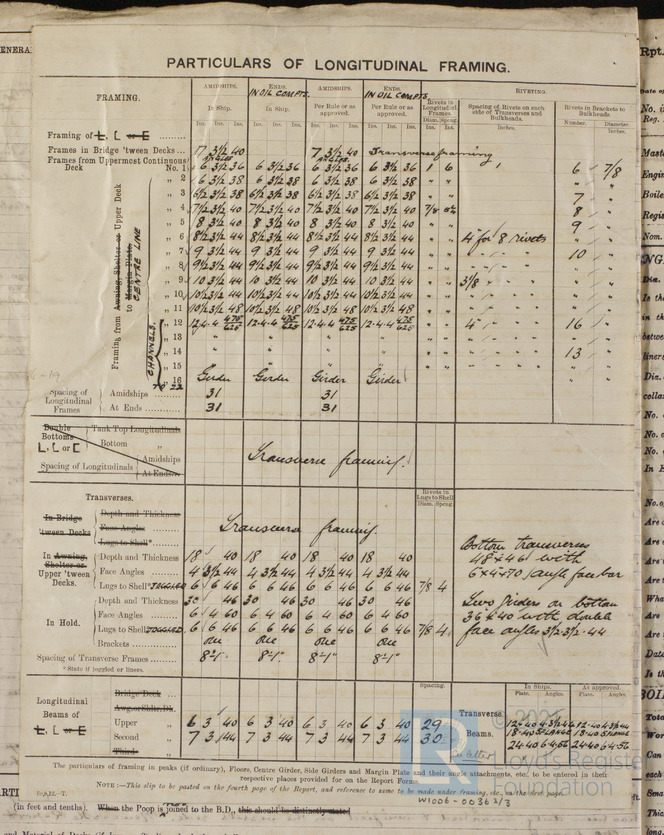 PARTICULARS OF LONGITUDINAL FRAMING.
FRAMING. AMIDSHIPS. ENDS. AMIDSHIPS. ENDS. RIVETING.
IN OIL COMPTS. IN OIL COMPTS.
In Ship. In Ship. Per Rule or as approved. Per Rule or as approved. Rivets in Longitudinal Frames. Spacing of Rivets on each side of Transverses and Bulkheads. Rivets in Brackets to Bulkheads.
Ins. Ins. Ins. Ins. Diam. Spcng. Inches. Number. Diameter
Framing of L, L or E
Frames in Bridge 'tween Decks 7 3½ 40 7 3½ 40 Transverse framing
Frames from Uppermost Continuous Deck
No. 1 6 3½ 36 6 3½ 36 6 3½ 36 6 3½ 36 1 6 6 7/8
„ 2 6 3½ 38 6 3½ 38 6 3½ 38 6 3½ 38 " "
„ 3 6½ 3½ 38 6½ 3½ 38 6½ 3½ 38 6½ 3½ 38 " " 7
„ 4 7½ 3½ 40 7½ 3½ 40 7½ 3½ 40 7½ 3½ 40 7/8 8
„ 5 8 3½ 40 8 3½ 40 8 3½ 40 8 3½ 40 " " 9
„ 6 8½ 3½ 44 8½ 3½ 44 8½ 3½ 44 8½ 3½ 44 " " 4 for 8 rivets
„ 7 9 3½ 44 9 3½ 44 9 3½ 44 9 3½ 44 " " 10
„ 8 9½ 3½ 44 9½ 3½ 44 9½ 3½ 44 9½ 3½ 44 " "
„ 9 10 3½ 44 10 3½ 44 10 3½ 44 10 3½ 44 " " 3 7/8
„ 10 10½ 3½ 44 10½ 3½ 44 10½ 3½ 44 10½ 3½ 44 " "
„ 11 10½ 3½ 48 10½ 3½ 48 10½ 3½ 48 10½ 3½ 48 " "
„ 12 12·4·4 475/625 12·4·4 475/625 12·4·4 475/625 12·4·4 475/625 " " 4 16
„ 13
„ 14 13
„ 15
„ 16 Girder Girder Girder Girder
Framing from Awning, Shelter or Upper Deck to Margin Plate
CENTRE LINE
CHANNELS
TO 22
Spacing of Longitudinal Frames Amidships 31 31
At Ends 31 31
Double Bottoms L, L or E Tank Top Longitudinals
Bottom „
Spacing of Longitudinals Amidships
At Ends
Transverse framing.
Transverses. Rivets in Lugs to Shell Diam. Spcng.
In Bridge 'tween Decks Depth and Thickness
Face Angles
Lugs to Shell*
Transverse framing.
In Awning, Shelter or Upper 'tween Decks.
Depth and Thickness 18 40 18 40 18 40 18 40
Face Angles 4 3½ 44 4 3½ 44 4 3½ 44 4 3½ 44
Lugs to Shell* JOGGLED 6 6 46 6 6 46 6 6 46 6 6 46 7/8 4
In Hold.
Depth and Thickness 30 46 30 46 30 46 30 46
Face Angles 6 4 60 6 4 60 6 4 60 6 4 60
Lugs to Shell* JOGGLED 6 6 46 6 6 46 6 6 46 6 6 46 7/8 4
Brackets
Spacing of Transverse Frames 8'-1" 8'-1" 8'-1" 8'-1"
* State if joggled or liners.
Bottom transverses
48 × 46 with
6×4×70 angle face bar
Two girders on bottom
36 × 40 with double
face angles 3½·3½·44
Longitudinal Beams of L, L or E
Spacing. In Ships. As approved.
Plate. Angles. Plate. Angles.
Bridge Deck
Awg. or Shltr. Dk.
Upper „ 6 3 40 6 3 40 6 3 40 6 3 40 29 Transverse Beams. 12·40 4·3½·44 12·40 4·3½·44
Second „ 7 3 44 7 3 44 7 3 44 7 3 44 30 18·40 FLANGE 18·40 FLANGE
Third „ 24·40 6·4·56 24·40 6·4·56
The particulars of framing in peaks (if ordinary), Floors, Centre Girder, Side Girders and Margin Plate and their angle attachments, etc., to be entered in their
respective places provided for on the Report Form.
NOTE:—This slip to be pasted on the fourth page of the Report, and reference to same to be made under framing, etc., on the first page.
W1006-0036 2/3
© 20
Lloyd's Register Foundation
(in feet and tenths). When the Poop is joined to the B.D., this should be distinctly stated